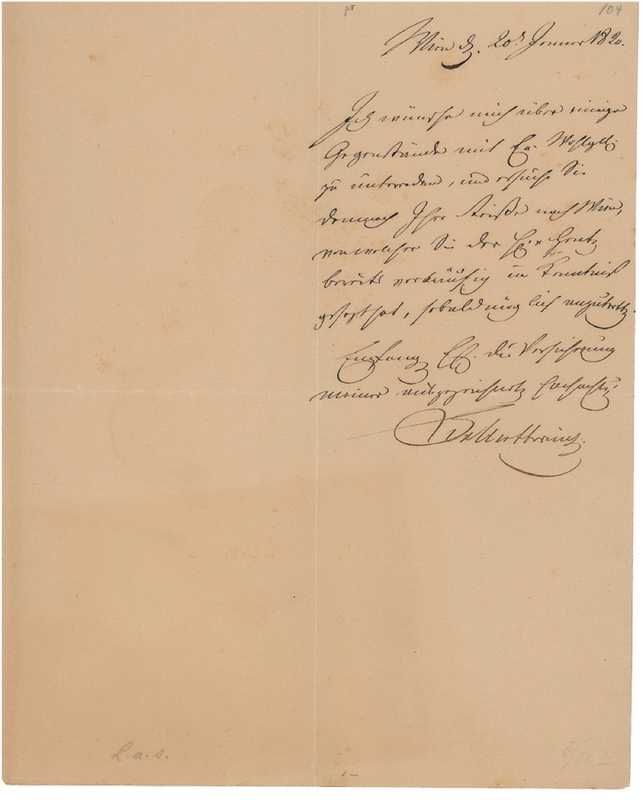 104
Wien d. 20t Januar 1820.
Ich wünsche mich über einige
Gegenstände mit Ew. Wohlgb.
zu unterreden, und ersuche Sie
demnach Ihre Reise nach Wien,
von welcher Sie der Hr. v Gentz
bereits vorläufig in Kenntniß
gesezt hat, sobald möglich anzutretten.
Empfangen Ew. die Versicherung
meiner ausgezeichneten Hochachtg.
v Metternich
L.a.s.